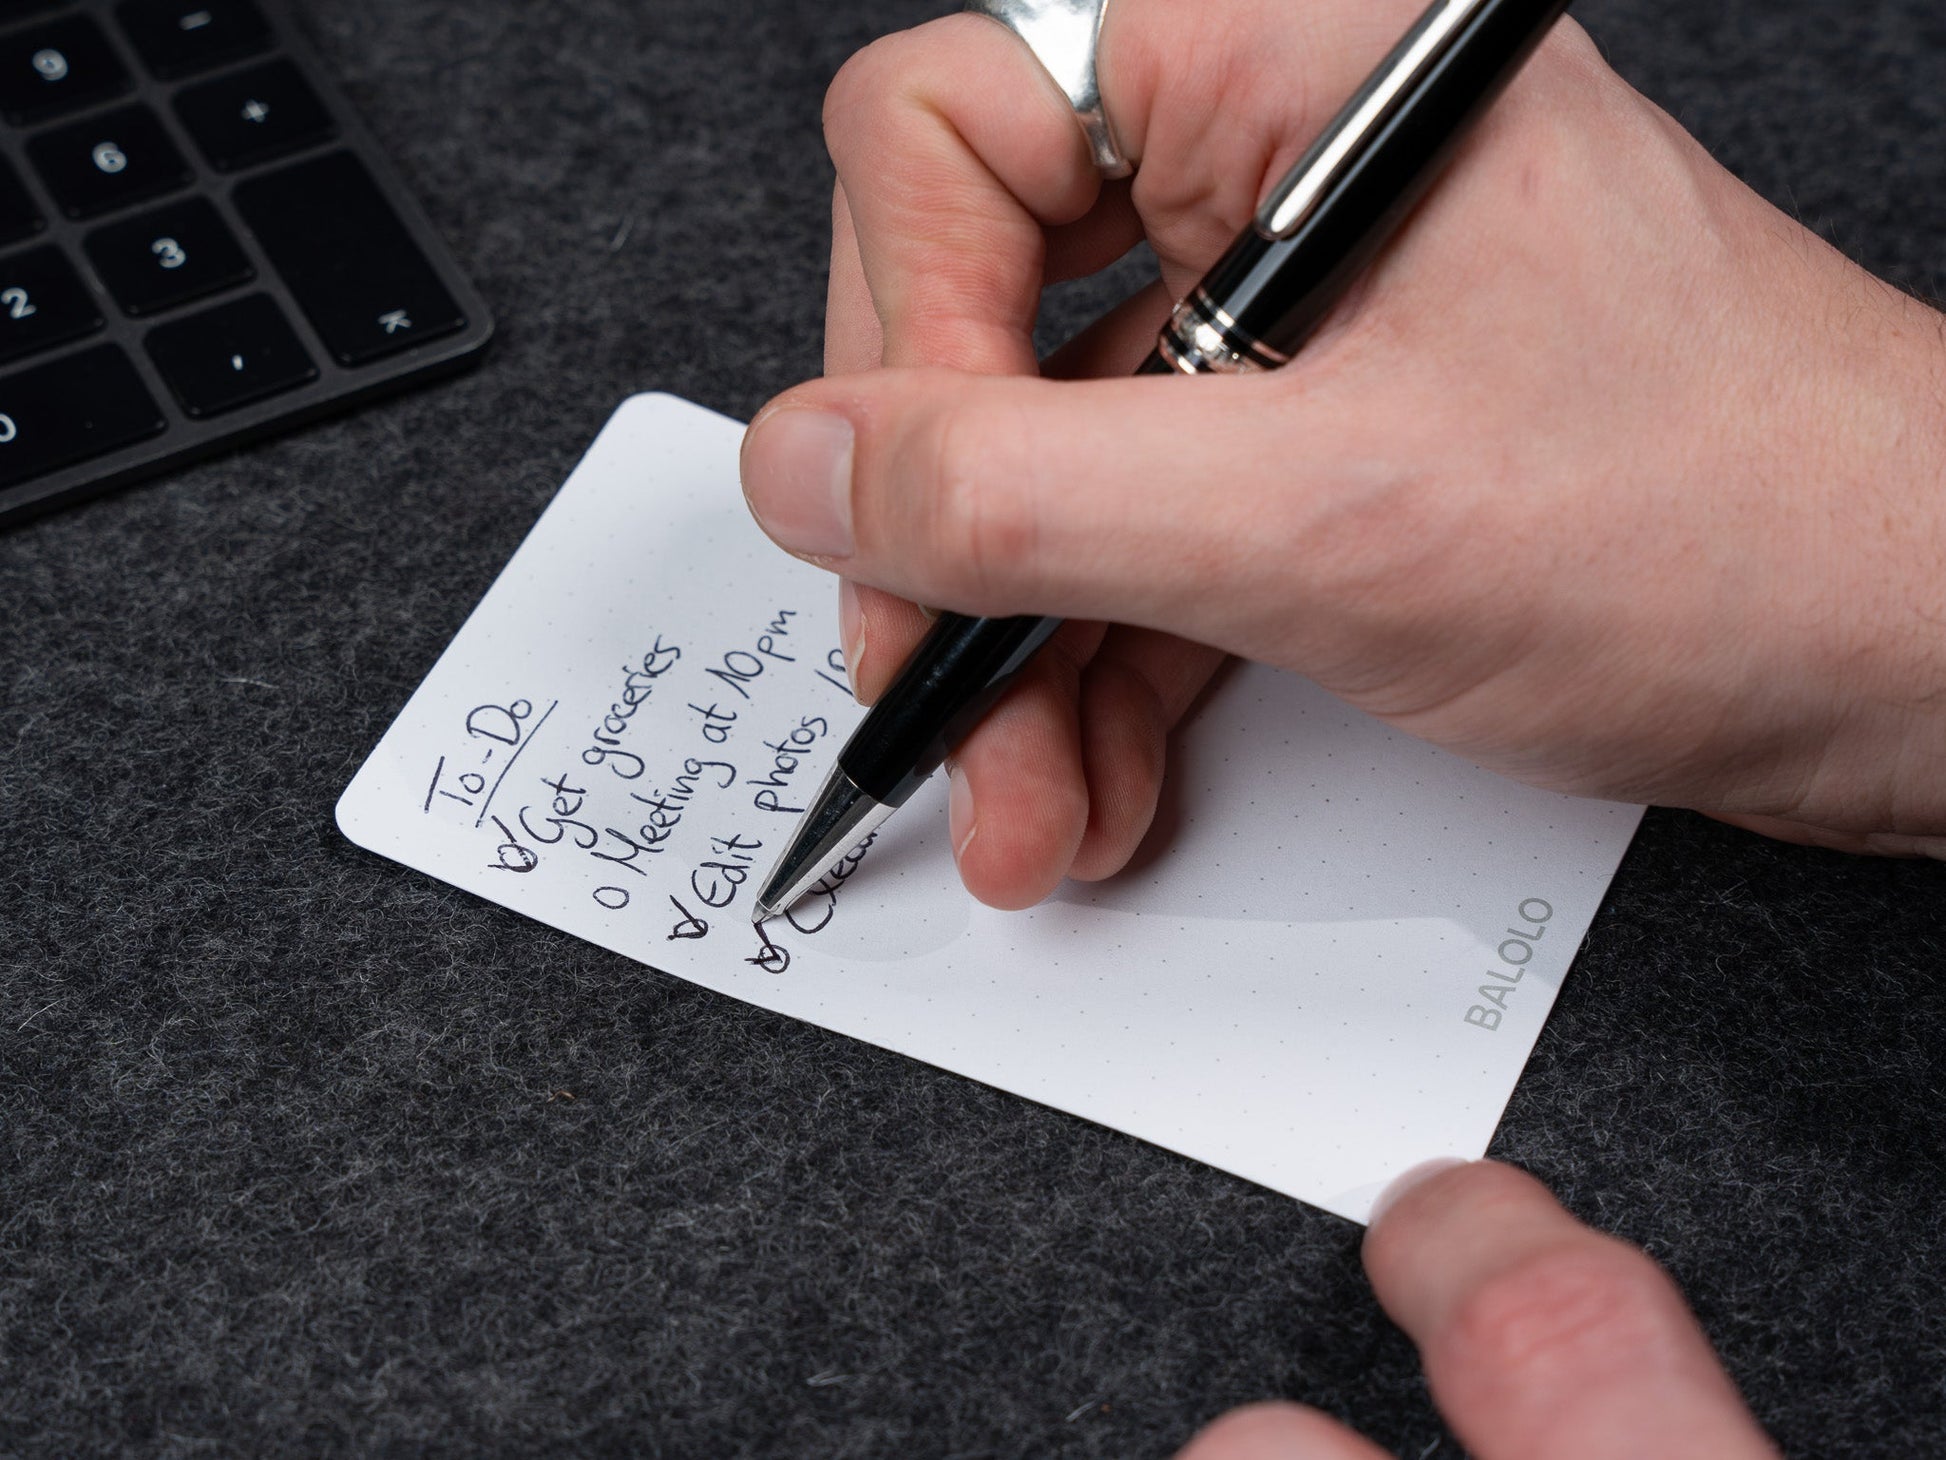 9 -
6 +
2 3
0 ,
To-Do
Get groceries
o Meeting at 10pm
Edit photos
BALOLO